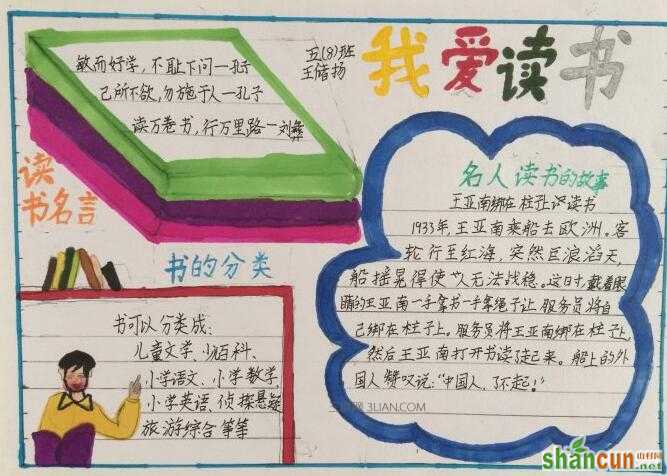 我爱读书
五(8)班
王储扬
敏而好学，不耻下问一孔子
己所不欲，勿施于人一孔子
读万卷书，行万里路一刘彝
读
书名言
书的分类
书可以分类成：
儿童文学、少百科、
小学语文、小学数学、
小学英语、侦探悬疑
旅游综合等等
名人读书的故事
王亚南绑在柱子上读书
1933年，王亚南乘船去欧洲。客
轮行至红海，突然巨浪滔天，
船摇晃得使人无法战稳。这时，戴着眼
睛的王亚南一手拿书一手拿绳子让服务员将自
己绑在柱子上。服务员将王亚南绑在柱子上，
然后王亚南打开书读起来。船上的外
国人赞叹说："中国人，了不起！"
3LIAN.COM
shancun.net
山村网